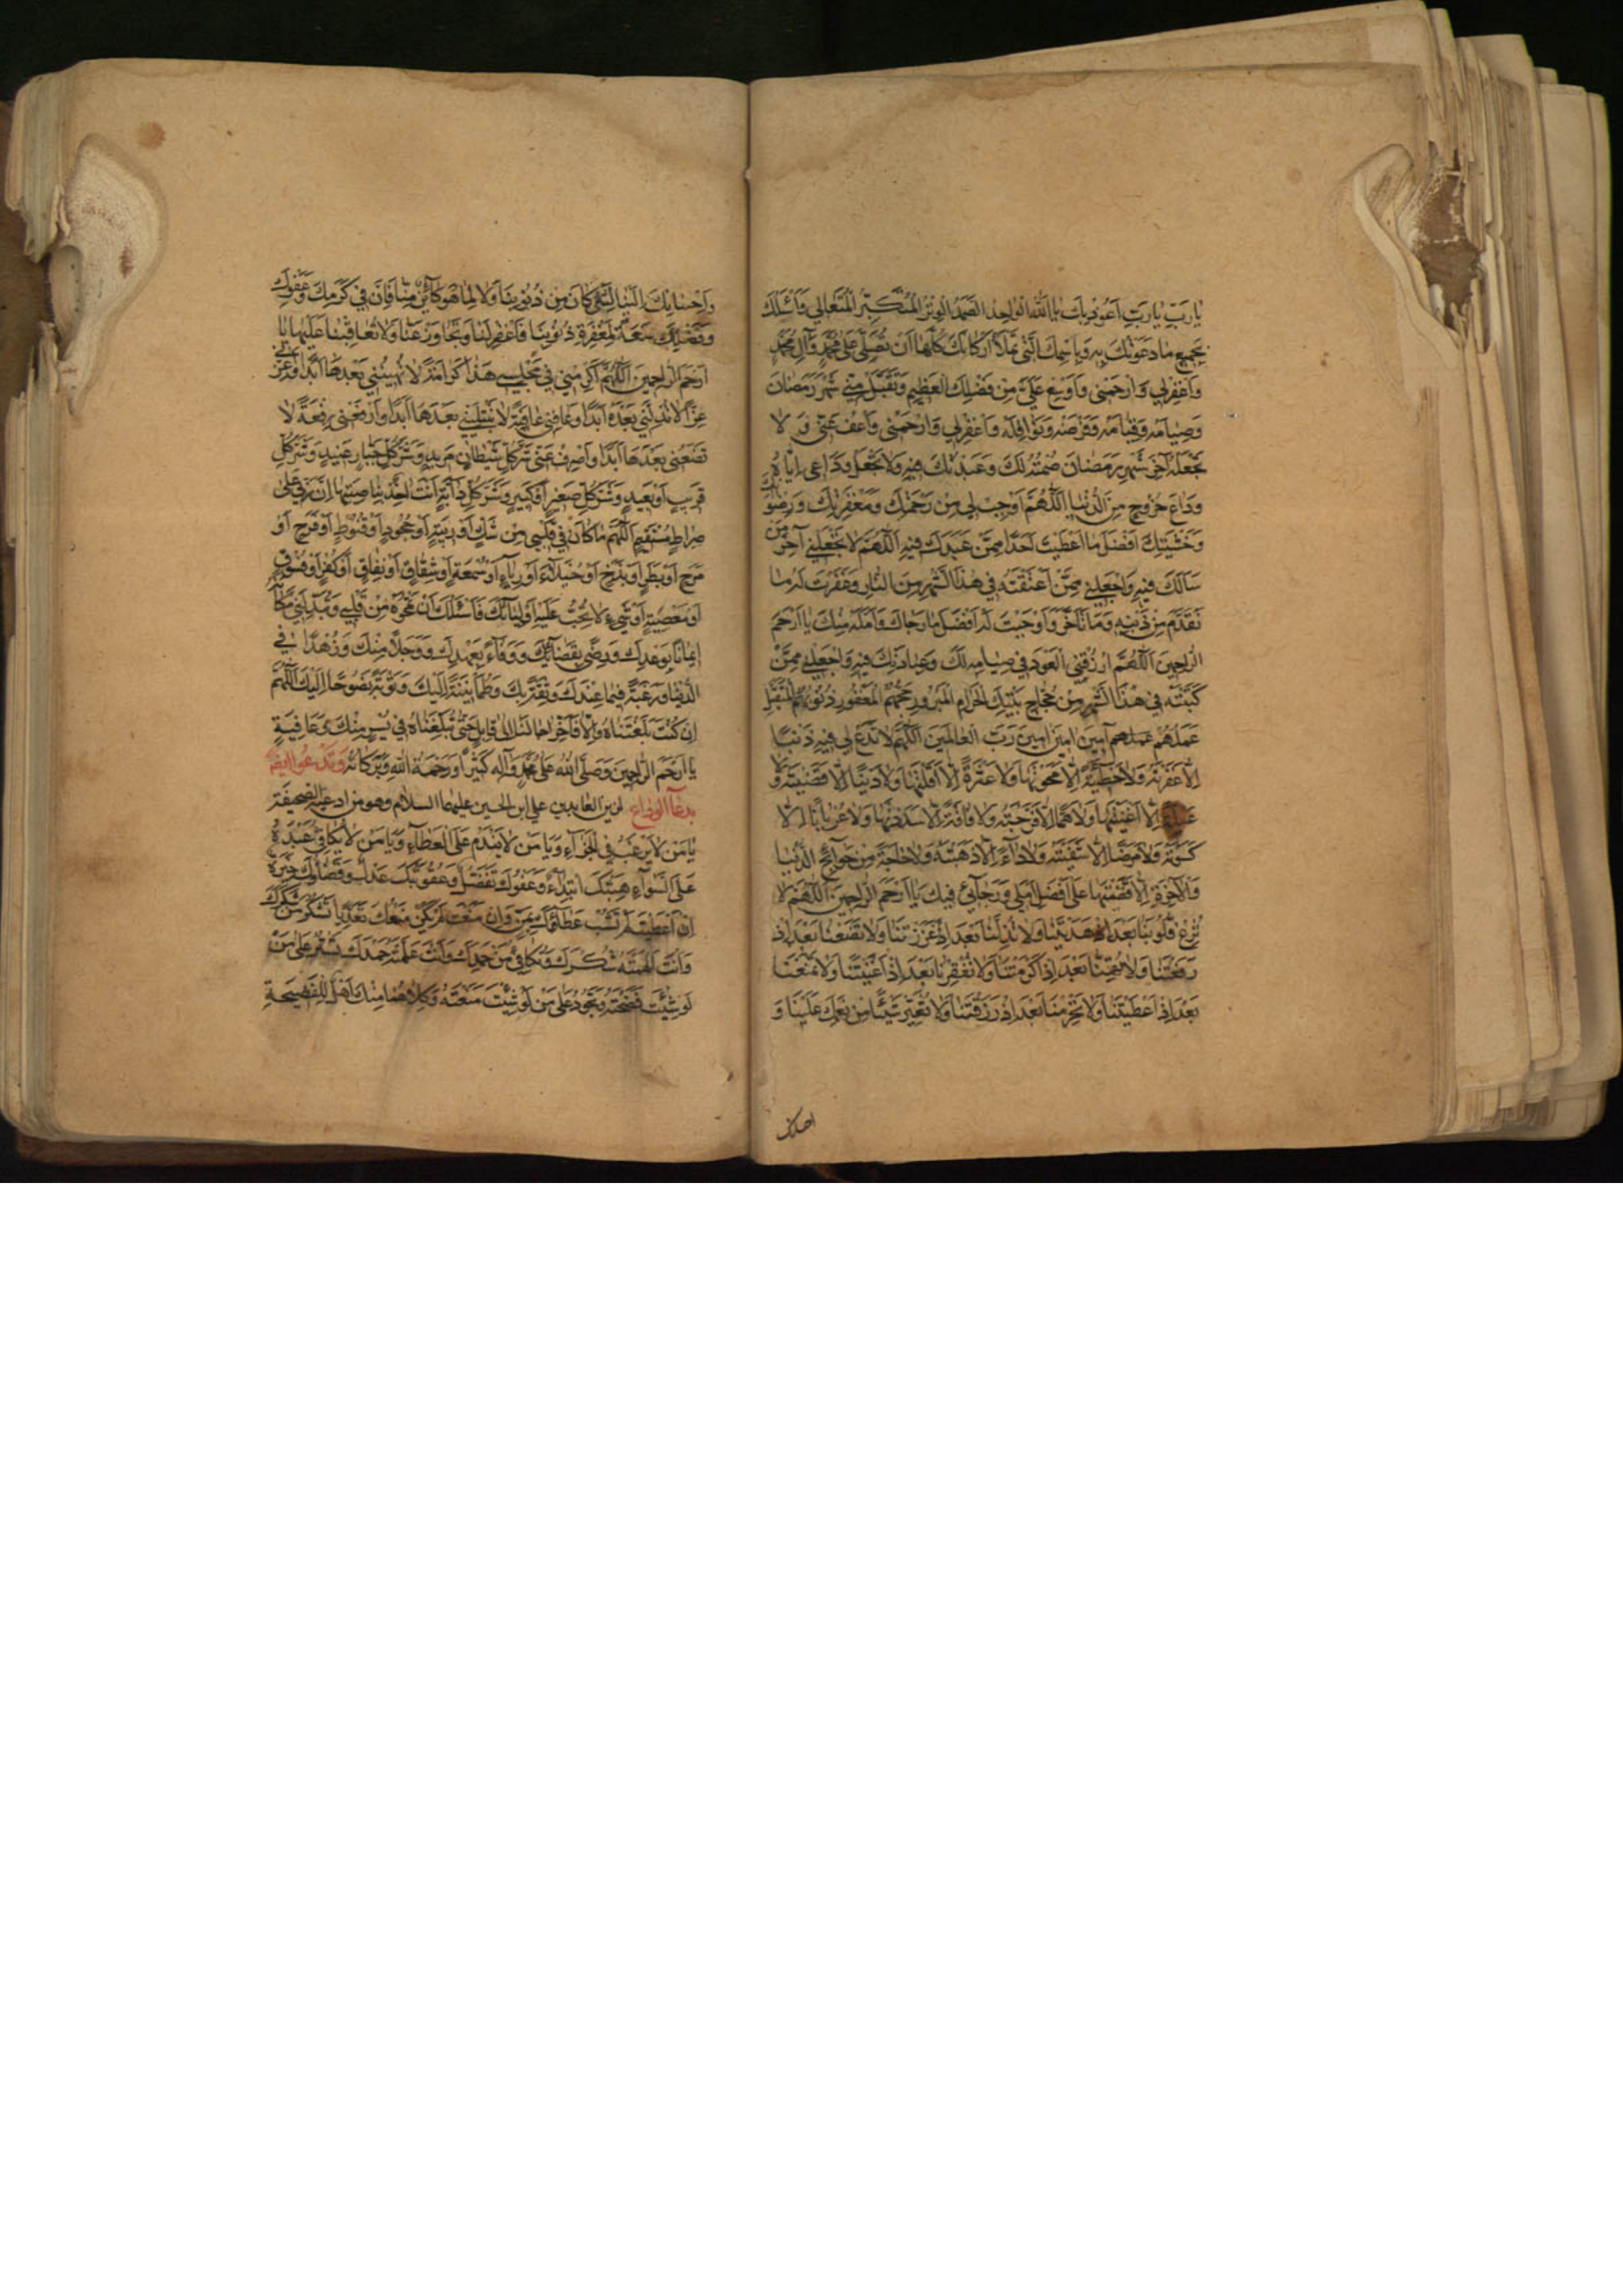 يٰا رَبِّ يٰا رَبِّ اَعُوذُ بِكَ يٰا اَللّٰهُ الْوٰاحِدُ الصَّمَدُ الْوِتْرُ الْمُتَكَبِّرُ الْمُتَعٰالِي فَاَسْئَلُكَ
بِجَمِيعِ مٰا دَعَوْتُكَ بِهِ وَبِاسْمِكَ الَّتِي تَمْلَأُ اَرْكٰانَكَ كُلَّهٰا اَنْ تُصَلِّيَ عَلىٰ مُحَمَّدٍ وَآلِ مُحَمَّدٍ
وَاغْفِرْ لِي وَارْحَمْنِي وَاَوْسِعْ عَلَيَّ مِنْ فَضْلِكَ الْعَظِيمِ وَتَقَبَّلْ مِنِّي شَهْرَ رَمَضٰانَ
وَصِيٰامَهُ وَقِيٰامَهُ وَفَرْضَهُ وَنَوٰافِلَهُ وَاغْفِرْ لِي وَارْحَمْنِي وَاعْفُ عَنِّي وَ لٰا
تَجْعَلْهُ آخِرَ شَهْرِ رَمَضٰانَ صُمْتُهُ لَكَ وَعَبَدْتُكَ فِيهِ وَلٰا تَجْعَلْ وِدٰاعِي اِيّٰاهُ
وِدٰاعَ خُرُوجٍ مِنَ الدُّنْيٰا اَللّٰهُمَّ اَوْجِبْ لِي مِنْ رَحْمَتِكَ وَمَغْفِرَتِكَ وَرِضْوٰانِكَ
وَخَشْيَتِكَ اَفْضَلَ مٰا اَعْطَيْتَ اَحَدًا مِمَّنْ عَبَدَكَ فِيهِ اَللّٰهُمَّ لٰا تَجْعَلْنِي آخِرَ مَنْ
سَأَلَكَ فِيهِ وَاجْعَلْنِي مِمَّنْ اَعْتَقْتَهُ فِي هٰذَا الشَّهْرِ مِنَ النّٰارِ وَغَفَرْتَ لَهُ مٰا
تَقَدَّمَ مِنْ ذَنْبِهِ وَمٰا تَاَخَّرَ وَاَوْجَبْتَ لَهُ اَفْضَلَ مٰا رَجٰاكَ وَاَمَّلَهُ مِنْكَ يٰا اَرْحَمَ
الرّٰاحِمِينَ اَللّٰهُمَّ ارْزُقْنِي الْعَوْدَ فِي صِيٰامِهِ لَكَ وَعِبٰادَتِكَ فِيهِ وَاجْعَلْنِي مِمَّنْ
كَتَبْتَهُ فِي هٰذَا الشَّهْرِ مِنْ حُجّٰاجِ بَيْتِكَ الْحَرٰامِ الْمَبْرُورِ حَجُّهُمُ الْمَغْفُورِ ذُنُوبُهُمُ الْمُتَقَبَّلِ
عَمَلُهُمْ عملهم آمِينَ امِينَ امِينَ رَبَّ الْعٰالَمِينَ اَللّٰهُمَّ لٰا تَدَعْ لِي فِيهِ ذَنْبًا
اِلّٰا غَفَرْتَهُ وَلٰا خَطِيئَةً اِلّٰا مَحَوْتَهٰا وَلٰا عَثْرَةً اِلّٰا اَقَلْتَهٰا وَلٰا دَيْنًا اِلّٰا قَضَيْتَهُ وَلٰا
عَيْلَةً اِلّٰا اَغْنَيْتَهٰا وَلٰا هَمًّا اِلّٰا فَرَّجْتَهُ وَلٰا فٰاقَةً اِلّٰا سَدَدْتَهٰا وَلٰا عُرْيٰانًا اِلّٰا
كَسَوْتَهُ وَلٰا مَرَضًا اِلّٰا شَفَيْتَهُ وَلٰا دٰاءً اِلّٰا اَذْهَبْتَهُ وَلٰا حٰاجَةً مِنْ حَوٰائِجِ الدُّنْيٰا
وَالْآخِرَةِ اِلّٰا قَضَيْتَهٰا عَلىٰ اَفْضَلِ اَمَلِي وَرَجٰائِي فِيكَ يٰا اَرْحَمَ الرّٰاحِمِينَ اَللّٰهُمَّ لٰا
تُزِغْ قُلُوبَنٰا بَعْدَ اِذْ هَدَيْتَنٰا وَلٰا تُذِلَّنٰا بَعْدَ اِذْ اَعْزَزْتَنٰا وَلٰا تَضَعْنٰا بَعْدَ اِذْ
رَفَعْتَنٰا وَلٰا تُهِنّٰا بَعْدَ اِذْ اَكْرَمْتَنٰا وَلٰا تُفْقِرْنٰا بَعْدَ اِذْ اَغْنَيْتَنٰا وَلٰا تَمْنَعْنٰا
بَعْدَ اِذْ اَعْطَيْتَنٰا وَلٰا تَحْرِمْنٰا بَعْدَ اِذْ رَزَقْتَنٰا وَلٰا تُغَيِّرْ شَيْئًا مِنْ نِعَمِكَ عَلَيْنٰا وَ
احسانك
وَاِحْسٰانِكَ اِلَيْنٰا لِشَيْءٍ كٰانَ مِنْ ذُنُوبِنٰا وَلٰا لِمٰا هُوَ كٰائِنٌ مِنّٰا فَاِنَّ فِي كَرَمِكَ وَعَفْوِكَ
وَفَضْلِكَ سَعَةً لِمَغْفِرَةِ ذُنُوبِنٰا فَاغْفِرْ لَنٰا وَتَجٰاوَزْ عَنّٰا وَلٰا تُعٰاقِبْنٰا عَلَيْهٰا يٰا
اَرْحَمَ الرّٰاحِمِينَ اَللّٰهُمَّ اَكْرِمْنِي فِي مَجْلِسِي هٰذٰا كَرٰامَةً لٰا تُهِينُنِي بَعْدَهٰا اَبَدًا وَاَعِزَّنِي
عِزًّا لٰا تُذِلُّنِي بَعْدَهُ اَبَدًا وَعٰافِنِي عٰافِيَةً لٰا تَبْتَلِينِي بَعْدَهٰا اَبَدًا وَارْفَعْنِي رِفْعَةً لٰا
تَضَعُنِي بَعْدَهٰا اَبَدًا وَاصْرِفْ عَنِّي شَرَّ كُلِّ شَيْطٰانٍ مَرِيدٍ وَشَرَّ كُلِّ جَبّٰارٍ عَنِيدٍ وَشَرَّ كُلِّ
قَرِيبٍ اَوْ بَعِيدٍ وَشَرَّ كُلِّ صَغِيرٍ اَوْ كَبِيرٍ وَشَرَّ كُلِّ دٰابَّةٍ اَنْتَ اٰخِذٌ بِنٰاصِيَتِهٰا اِنَّ رَبِّي عَلىٰ
صِرٰاطٍ مُسْتَقِيمٍ اَللّٰهُمَّ مٰا كٰانَ فِي قَلْبِي مِنْ شَكٍّ اَوْ رِيبَةٍ اَوْ جُحُودٍ اَوْ قُنُوطٍ اَوْ فَرَحٍ اَوْ
مَرَحٍ اَوْ بَطَرٍ اَوْ بَذَخٍ اَوْ خُيَلٰاءَ اَوْ رِيٰاءٍ اَوْ سُمْعَةٍ اَوْ شِقٰاقٍ اَوْ نِفٰاقٍ اَوْ كُفْرٍ اَوْ فُسُوقٍ
اَوْ مَعْصِيَةٍ اَوْ شَيْءٍ لٰا تُحِبُّ عَلَيْهِ اَوْلِيٰائَكَ فَاَسْئَلُكَ اَنْ تَمْحُوَهُ مِنْ قَلْبِي وَتُبَدِّلَنِي مَكٰانَهُ
اِيمٰانًا بِوَعْدِكَ وَرِضًى بِقَضٰائِكَ وَوَفٰاءً بِعَهْدِكَ وَوَجَلًا مِنْكَ وَزُهْدًا فِي
الدُّنْيٰا وَرَغْبَةً فِيمٰا عِنْدَكَ وَثِقَةً بِكَ وَطُمَأْنِينَةً اِلَيْكَ وَتَوْبَةً نَصُوحًا اِلَيْكَ اَللّٰهُمَّ
اِنْ كُنْتَ بَلَّغْتَنٰاهُ وَاِلّٰا فَاَخِّرْ اٰجٰالَنٰا اِلىٰ قٰابِلٍ حَتّٰى تُبَلِّغَنٰاهُ فِي يُسْرٍ مِنْكَ وَعٰافِيَةٍ
يٰا اَرْحَمَ الرّٰاحِمِينَ وَصَلَّى اللّٰهُ عَلىٰ مُحَمَّدٍ وَآلِهِ كَثِيرًا وَرَحْمَةُ اللّٰهِ وَبَرَكٰاتُهُ وَتَدْعُوا ايضًا
بدعآء الوداع لزين العٰابدين علي ابن الحسين عليهما السلام وهو من ادعية الصحيفة
يٰا مَنْ لٰا يَرْغَبُ فِي الْجَزٰاءِ وَيٰا مَنْ لٰا يَنْدَمُ عَلَى الْعَطٰاءِ وَيٰا مَنْ لٰا يُكٰافِئُ عَبْدَهُ
عَلَى السَّوٰاءِ هِبَتُكَ ابْتِدٰاءٌ وَعَفْوُكَ تَفَضُّلٌ وَعُقُوبَتُكَ عَدْلٌ وَقَضٰاؤُكَ خِيَرَةٌ
اِنْ اَعْطَيْتَ لَمْ تَشُبْ عَطٰاءَكَ بِمَنٍّ وَاِنْ مَنَعْتَ لَمْ يَكُنْ مَنْعُكَ تَعَدِّيًا تَشْكُرُ مَنْ شَكَرَكَ
وَاَنْتَ اَلْهَمْتَهُ شُكْرَكَ وَتُكٰافِئُ مَنْ حَمِدَكَ وَاَنْتَ عَلَّمْتَهُ حَمْدَكَ تَسْتُرُ عَلىٰ مَنْ
لَوْ شِئْتَ فَضَحْتَهُ وَتَجُودُ عَلىٰ مَنْ لَوْ شِئْتَ مَنَعْتَهُ وَكِلٰاهُمٰا مِنْكَ اَهْلٌ لِلْفَضِيحَةِ